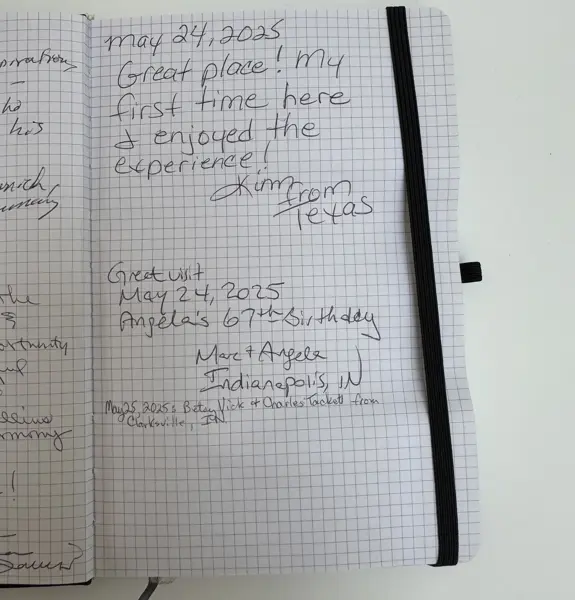 his
the
May 24, 2025
Great place! My
first time here
& enjoyed the
experience!
Kim
from
Texas
Great visit
May 24, 2025
Angela's 67th Birthday
Marc + Angela
Indianapolis, IN
May 25, 2025: Betsy Vick + Charles Tackett from
Clarksville, IN